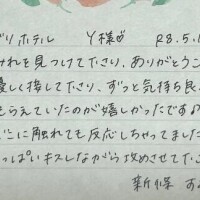 ブリホテル Y様♡ R8.5.1
みれを見つけて下さり、ありがとうこ
優しく接して下さり、ずっと気持ち良く
もらえていたのが嬉しかったです
に触れても反応しちゃってました
っぱいキスしながら攻めさせて下さ
新保 す